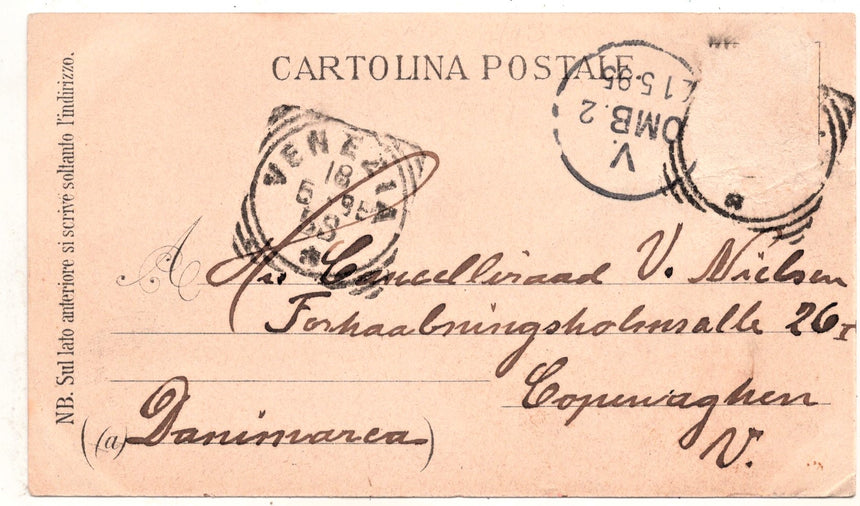 CARTOLINA POSTALE
NB. Sul lato anteriore si scrive soltanto l'indirizzo.
VENEZIA
18
5 95
V.
OMB. 2
21 5.95
A Hr. Cancelliraad V. Nielsen
Forhaabningsholmsalle 26 I
Copenaghen
V.
(a) Danimarca